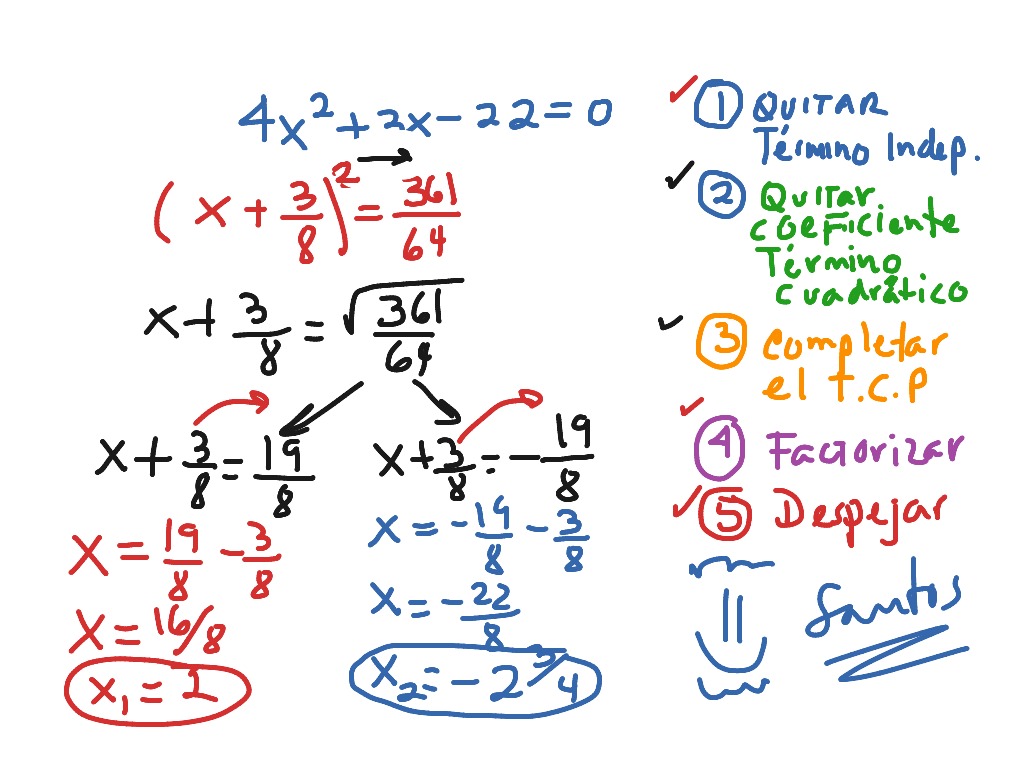 4x² + 2x - 22 = 0
(x + 3/8)² = 361/64
x + 3/8 = √(361/64)
x + 3/8 = 19/8
x + 3/8 = - 19/8
x = 19/8 - 3/8
x = 16/8
x₁ = 2
x = - 19/8 - 3/8
x = - 22/8
x₂ = - 2 3/4
① QUITAR
Término Indep.
② Quitar
coeficiente
Término
cuadrático
③ Completar
el T.C.P
④ Factorizar
⑤ Despejar
Santos